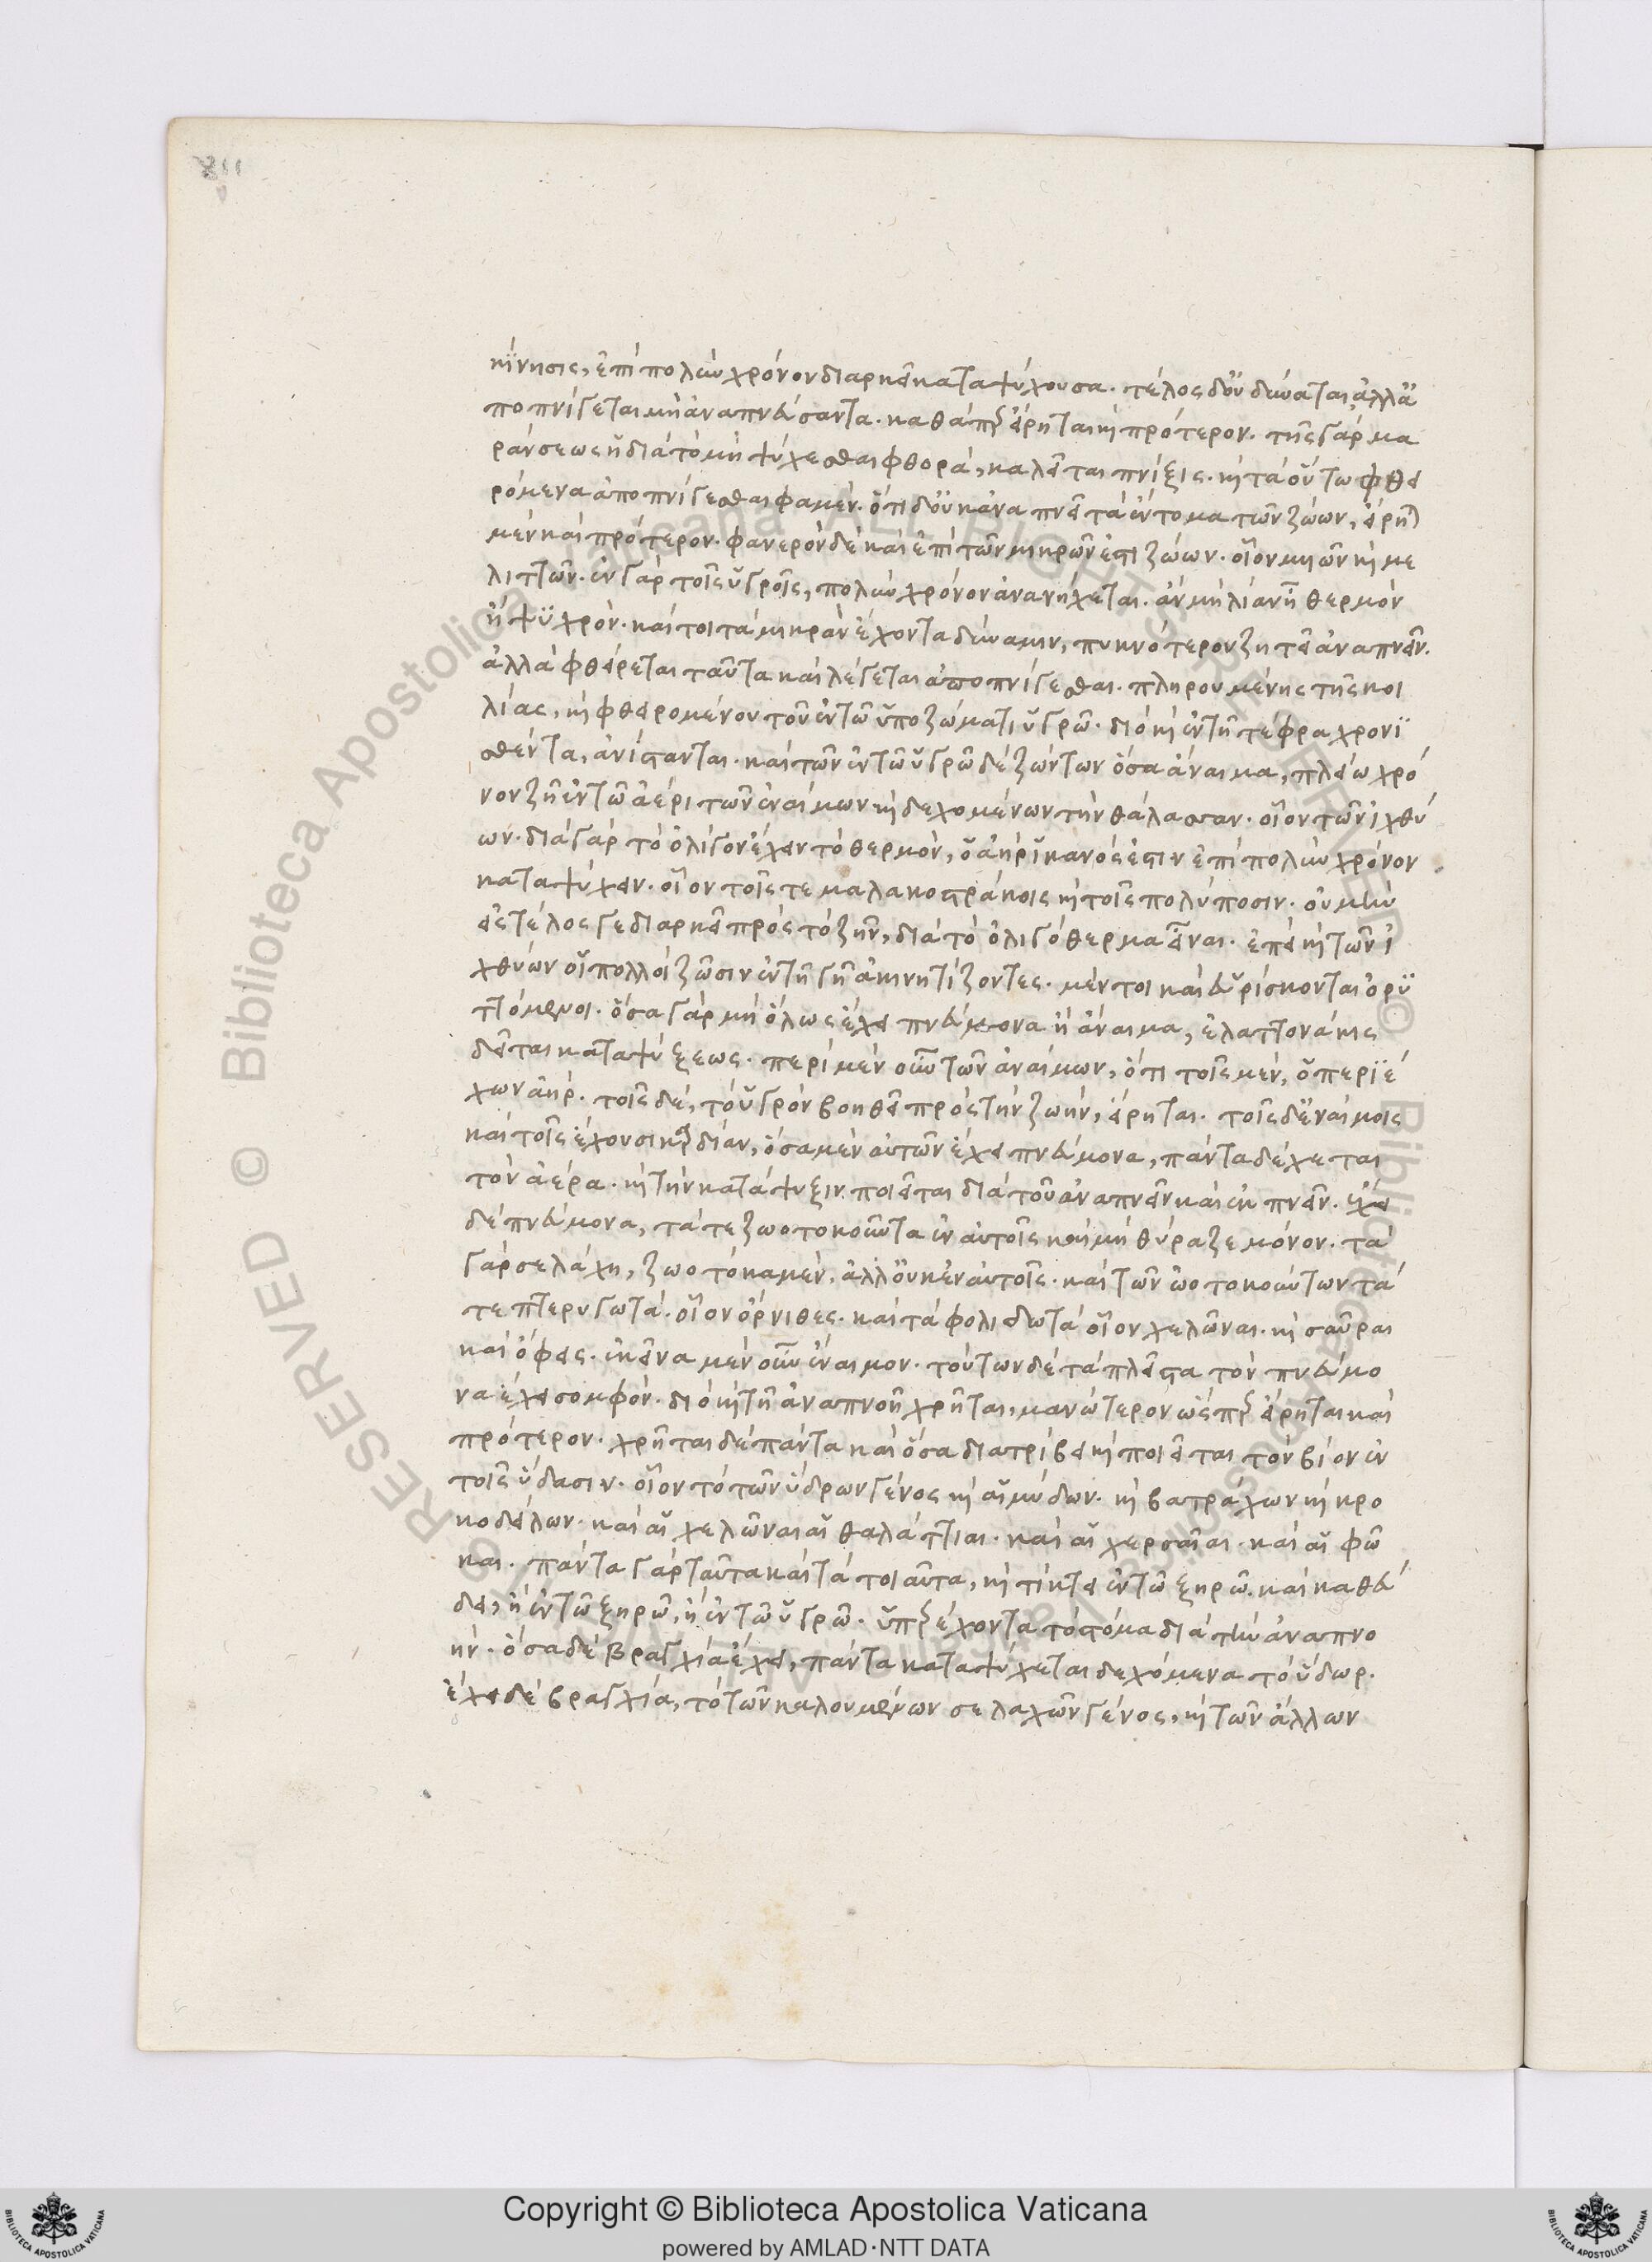 κίνησις, ἐπὶ πολὺν χρόνον διαρκεῖ καταψύχουσα. τέλος δ' οὐ δύναται, ἀλλ' ἀ
ποπνίγεται μὴ ἀναπνεύσαντα. καθάπερ εἴρηται καὶ πρότερον. τῆς γὰρ μα
ράνσεως ἡ διὰ τὸ μὴ ψύχεσθαι φθορά, καλεῖται πνίξις. καὶ τὰ οὕτω φθει
ρόμενα ἀποπνίγεσθαι φαμέν. ὅτι δ' οὐκ ἀναπνεῖ τὰ ἔντομα τῶν ζώων, εἴρηται
μὲν καὶ πρότερον. φανερὸν δὲ καὶ ἐπὶ τῶν μικρῶν ἐστι ζώων. οἷον μυιῶν καὶ με
λιττῶν. ἐν γὰρ τοῖς ὑγροῖς, πολὺν χρόνον ἀνανήχεται. ἂν μὴ λίαν ᾖ θερμὸν
ἢ ψυχρόν. καίτοι τὰ μικρὰν ἔχοντα δύναμιν, πυκνότερον ζητεῖ ἀναπνεῖν.
ἀλλὰ φθείρεται ταῦτα καὶ λέγεται ἀποπνίγεσθαι. πληρουμένης τῆς κοι
λίας, καὶ φθειρομένου τοῦ ἐν τῷ ὑποζώματι ὑγρῷ. διὸ καὶ ἐν τῇ τέφρᾳ χρονι
σθέντα, ἀνίσταται. καὶ τῶν ἐν τῷ ὑγρῷ δὲ ζώντων ὅσα ἄναιμα, πλείω χρό
νον ζῇ ἐν τῷ ἀέρι τῶν ἐναίμων καὶ δεχομένων τὴν θάλασσαν. οἷον τῶν ἰχθύ
ων. διὰ γὰρ τὸ ὀλίγον ἔχειν τὸ θερμόν, ὁ ἀὴρ ἱκανός ἐστιν ἐπὶ πολὺν χρόνον
καταψύχειν. οἷον τοῖς τε μαλακοστράκοις καὶ τοῖς πολύποσιν. οὐ μὴν
εἰς τέλος γε διαρκεῖ πρὸς τὸ ζῆν, διὰ τὸ ὀλιγόθερμα εἶναι. ἐπεὶ καὶ τῶν ἰ
χθύων οἱ πολλοὶ ζῶσιν ἐν τῇ γῇ ἀκινητίζοντες. μέντοι καὶ εὑρίσκονται ὀρυ
ττόμενοι. ὅσα γὰρ μὴ ὅλως ἔχει πνεύμονα ἢ ἄναιμα, ἐλαττονάκις
δεῖται καταψύξεως. περὶ μὲν οὖν τῶν ἀναίμων, ὅτι τοῖς μὲν, ὁ περιέ
χων ἀήρ. τοῖς δὲ, τὸ ὑγρὸν βοηθεῖ πρὸς τὴν ζωήν, εἴρηται. τοῖς δ' ἐναίμοις
καὶ τοῖς ἔχουσι καρδίαν, ὅσα μὲν αὐτῶν ἔχει πνεύμονα, πάντα δέχεται
τὸν ἀέρα. καὶ τὴν κατάψυξιν ποιεῖται διὰ τοῦ ἀναπνεῖν καὶ ἐκπνεῖν. ἔχει
δὲ πνεύμονα, τά τε ζωοτοκοῦντα ἐν αὑτοῖς καὶ μὴ θύραζε μόνον. τὰ
γὰρ σελάχη, ζωοτόκα μὲν, ἀλλ' οὐκ ἐν αὑτοῖς. καὶ τῶν ὠοτοκούντων τά
τε πτερυγωτά. οἷον ὄρνιθες. καὶ τὰ φολιδωτὰ οἷον χελῶναι. καὶ σαῦραι
καὶ ὄφεις. ἐκεῖνα μὲν οὖν ἔναιμον. τούτων δὲ τὰ πλεῖστα τὸν πνεύμο
να ἔχει σομφόν. διὸ καὶ τῇ ἀναπνοῇ χρῆται, μανώτερον ὥσπερ εἴρηται καὶ
πρότερον. χρῆται δὲ πάντα καὶ ὅσα διατρίβει καὶ ποιεῖται τὸν βίον ἐν
τοῖς ὕδασιν. οἷον τὸ τῶν ὕδρων γένος καὶ αἱμύδων. καὶ βατράχων καὶ κρο
κοδείλων. καὶ αἱ χελῶναι αἱ θαλάττιαι. καὶ αἱ χερσαῖαι. καὶ αἱ φῶ
και. πάντα γὰρ ταῦτα καὶ τὰ τοιαῦτα, καὶ τίκτει ἐν τῷ ξηρῷ. καὶ καθεύ
δει, ἢ ἐν τῷ ξηρῷ, ἢ ἐν τῷ ὑγρῷ. ὑπερέχοντα τὸ στόμα διὰ τὴν ἀναπνο
ήν. ὅσα δὲ βραγχία ἔχει, πάντα καταψύχεται δεχόμενα τὸ ὕδωρ.
ἔχει δὲ βραγχία, τὸ τῶν καλουμένων σελαχῶν γένος, καὶ τῶν ἄλλων
Copyright © Biblioteca Apostolica Vaticana
powered by AMLAD·NTT DATA